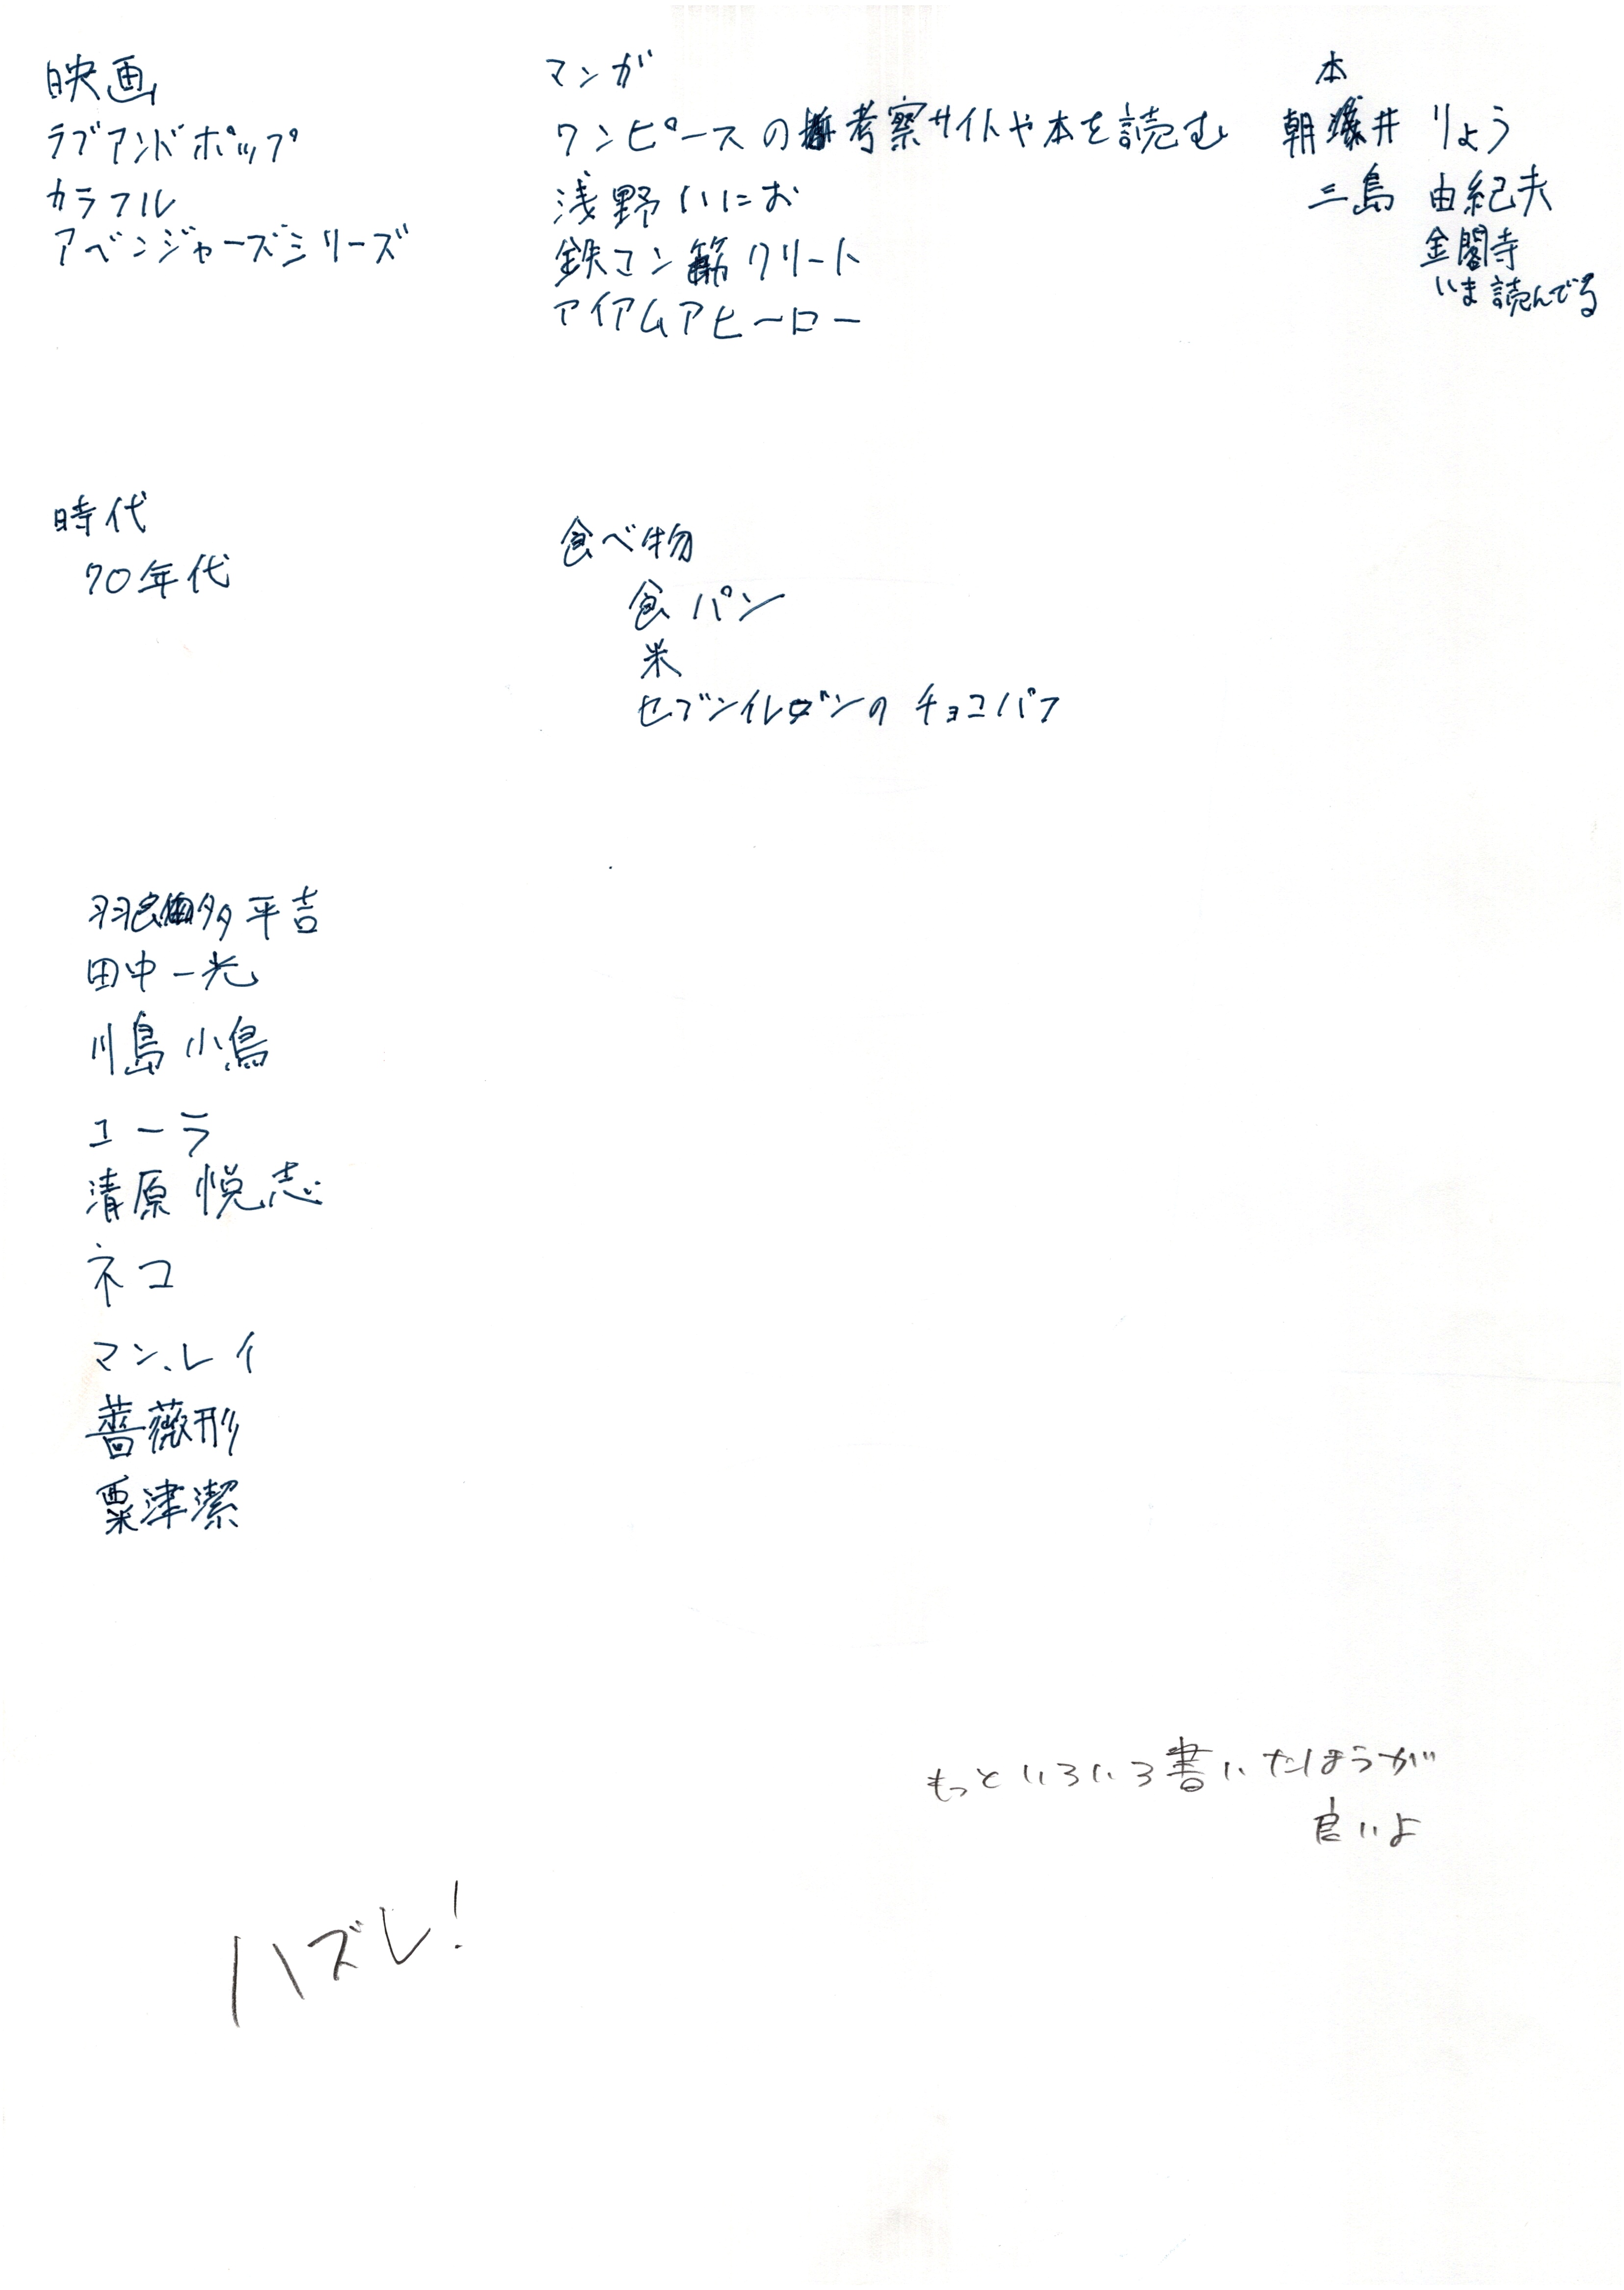 映画
ラブアンドポップ
カラフル
アベンジャーズシリーズ
マンガ
ワンピースの考察サイトや本を読む
浅野いにお
鉄コン筋クリート
アイアムアヒーロー
本
朝井 りょう
三島 由紀夫
金閣寺
いま読んでる
時代
70年代
食べ物
食パン
米
セブンイレブンの チョコパフ
羽良多平吉
田中一光
川島小鳥
ユーラ
清原悦志
ネコ
マン、レイ
薔薇形
粟津潔
もっといろいろ書いたほうが
良いよ
ハズレ!